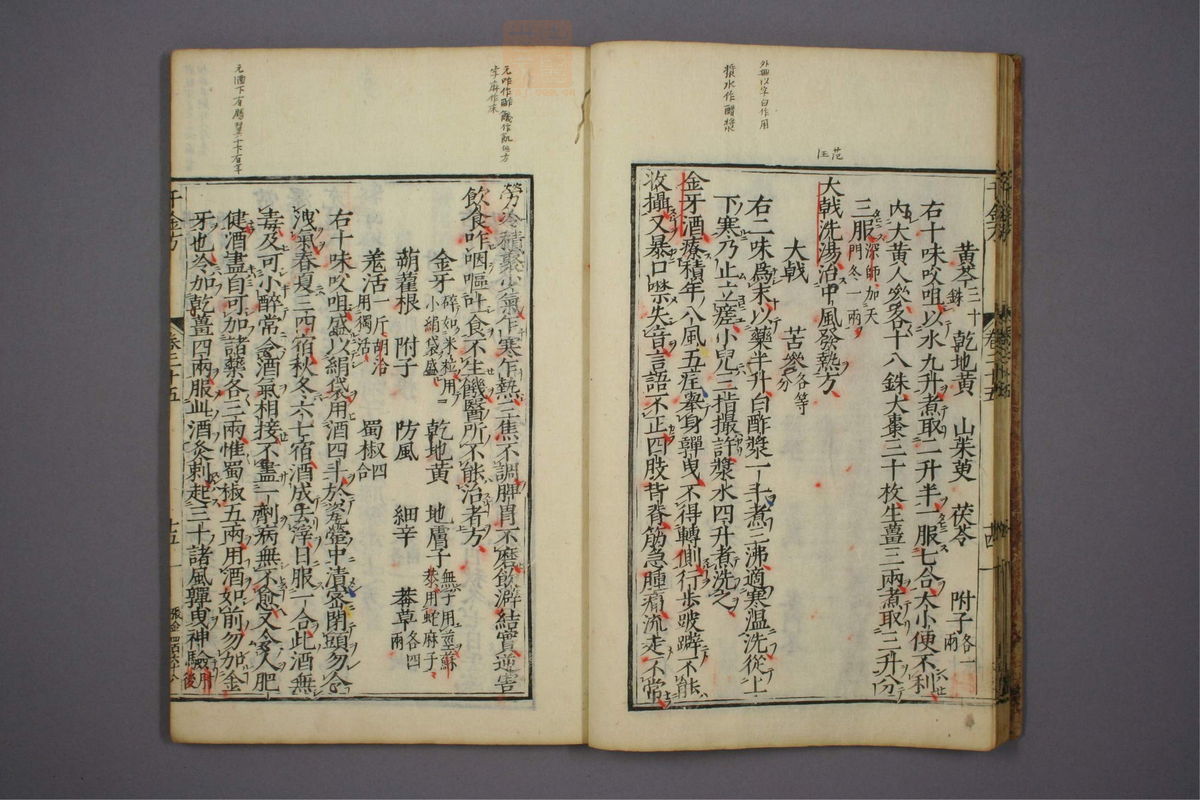 黄芩三十銖 乾地黄 山茱萸 茯苓 附子各一兩
右十味㕮咀以水九升煮取二升半一服七合大小便不利
内大黄人參各十八銖大棗三十枚生薑三兩煮取三升分
三服深師加天門冬一兩
大戟洗湯治中風發熱方
大戟 苦參各等分
右二味爲末以藥半升白酢漿一斗煮三沸適寒溫洗從上
下寒乃止立瘥小兒三指撮許漿水四升煮洗之
金牙酒療積年八風五疰舉身嚲曳不得轉側行步跛躃不能
收攝又暴口噤失音言語不正四肢背脊筋急腫痛流走不常
勞冷積聚少氣乍寒乍熱三焦不調脾胃不磨飲澼結實逆害
飲食咋咽嘔吐食不生饑醫所不能治者方
金牙碎如米粒用二小絹袋盛 乾地黄 地膚子無子用莖蘇恭用蛇麻子
蒴藋根 附子 防風 細辛 莽草各四兩
羌活一斤胡洽用獨活 蜀椒四合
右十味㕮咀盛以絹袋用酒四斗於瓷罌中漬密閉頭勿令
洩氣春夏三四宿秋冬六七宿酒成去滓日服一合此酒無
毒及可小醉常令酒氣相接不盡一劑病無不愈又令人肥
健酒盡自可加諸藥各三兩惟蜀椒五兩用酒如前勿加金
牙也冷加乾薑四兩服此酒灸刺起三十諸風嚲曳神驗
千金方 卷二十五 七五
漿水作醋漿